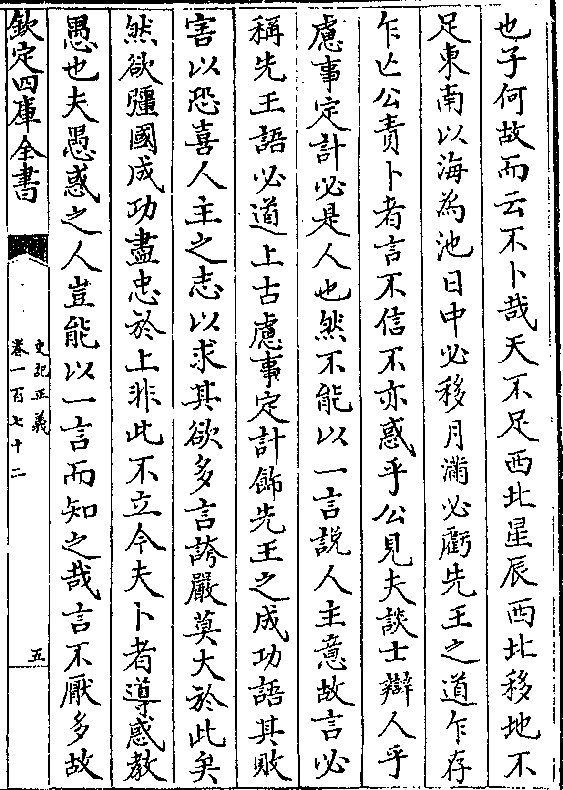 也子何故而云不卜哉天不足西北星辰西北移地不
足東南以海為池日中必移月滿必虧先王之道乍存
乍亡公責卜者言不信不亦惑乎公見夫談士辯人乎
慮事定計必是人也然不能以一言說人主意故言必
稱先王語必道上古慮事定計飾先王之成功語其敗
害以恐喜人主之志以求其欲多言誇嚴莫大於此矣
然欲彊國成功盡忠於上非此不立今夫卜者導惑教
愚也夫愚惑之人豈能以一言而知之哉言不厭多故
欽定四庫全書
史記正義
卷一百七十二
五